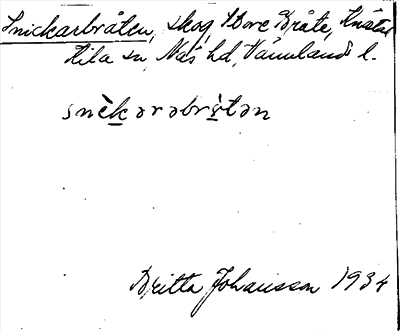 Snickarbråten, skog, Stora Bråte,
Kila sn, Näs hd, Värmlands l.
snèkarabrɩ̀tən
Britta Johansson 1934